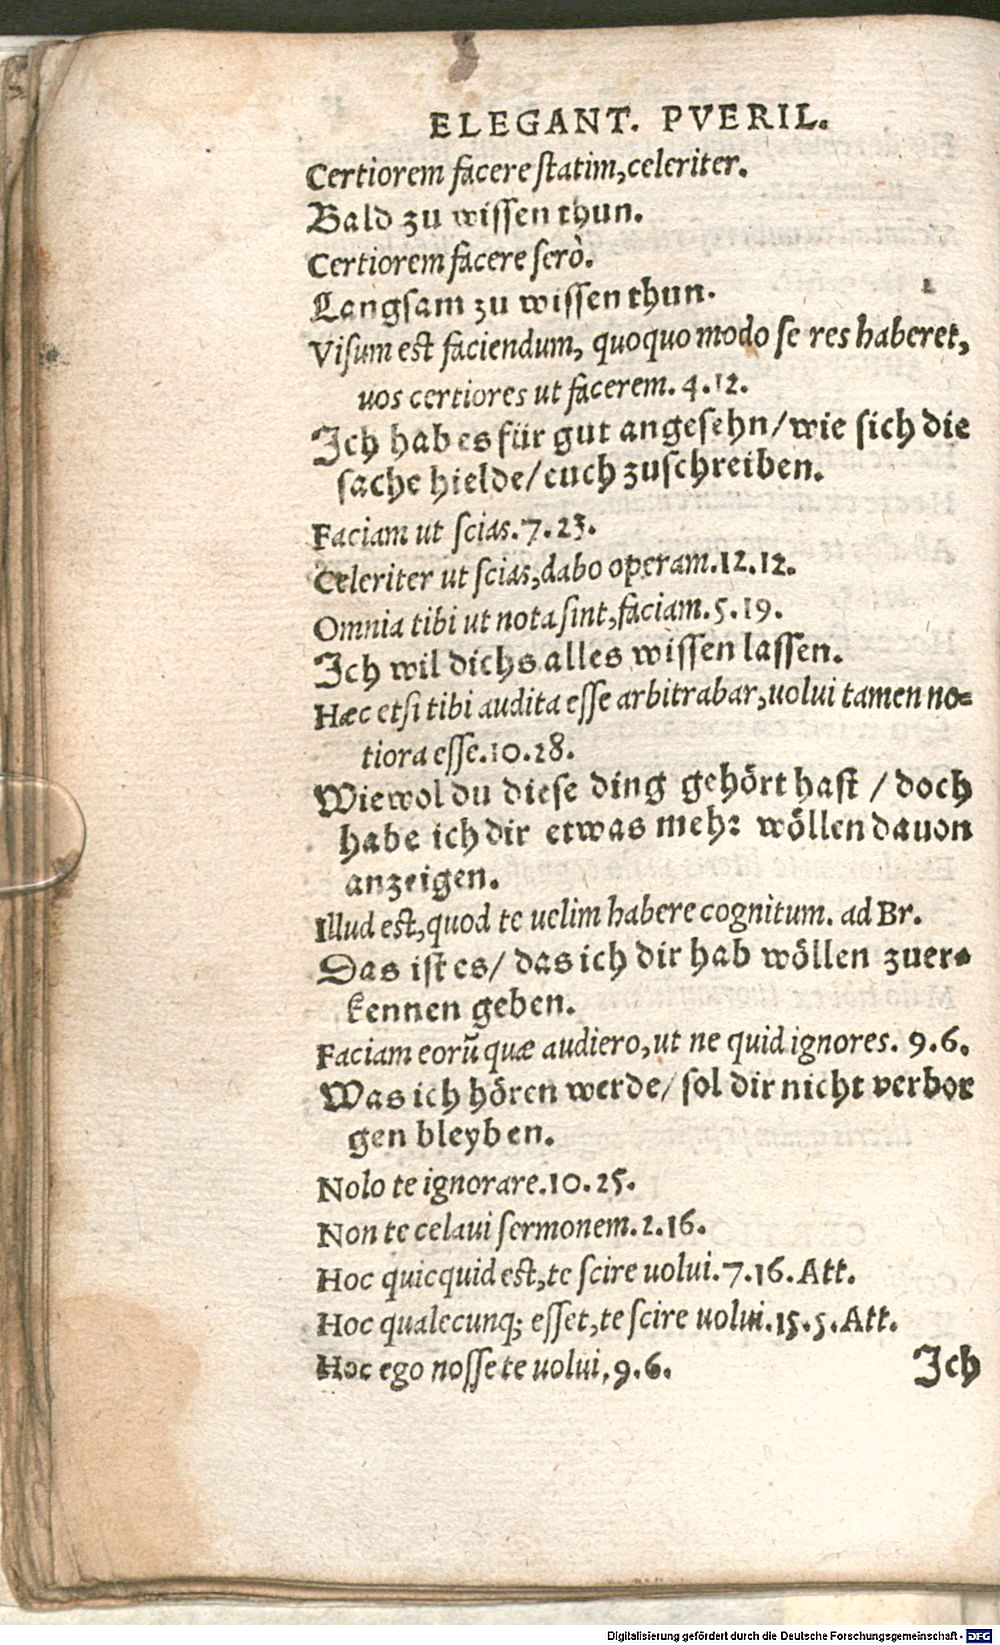 ELEGANT. PVERIL.
Certiorem facere ſtatim, celeriter.
Bald zu wiſſen thun.
Certiorem facere ſerò.
Langſam zu wiſſen thun.
Viſum eſt faciendum, quoquo modo ſe res haberet,
uos certiores ut facerem. 4. 12.
Ich hab es für gut angeſehn / wie ſich die
ſache hielde / euch zuſchreiben.
Faciam ut ſcias. 7. 23.
Celeriter ut ſcias, dabo operam. 12. 12.
Omnia tibi ut nota ſint, faciam. 5. 19.
Ich wil dichs alles wiſſen laſſen.
Hæc etſi tibi audita eſſe arbitrabar, uolui tamen no=
tiora eſſe. 10. 28.
Wiewol du dieſe ding gehört haſt / doch
habe ich dir etwas mehr wöllen dauon
anzeigen.
Illud eſt, quod te uelim habere cognitum. ad Br.
Das iſt es / das ich dir hab wöllen zuer=
kennen geben.
Faciam eorũ quæ audiero, ut ne quid ignores. 9. 6.
Was ich hören werde / ſol dir nicht verbor
gen bleyben.
Nolo te ignorare. 10. 25.
Non te celaui ſermonem. 2. 16.
Hoc quicquid eſt, te ſcire uolui. 7. 16. Att.
Hoc qualecunq; eſſet, te ſcire uolui. 15. 5. Att.
Hoc ego noſſe te uolui, 9. 6.
Ich
Digitalisierung gefördert durch die Deutsche Forschungsgemeinschaft - DFG